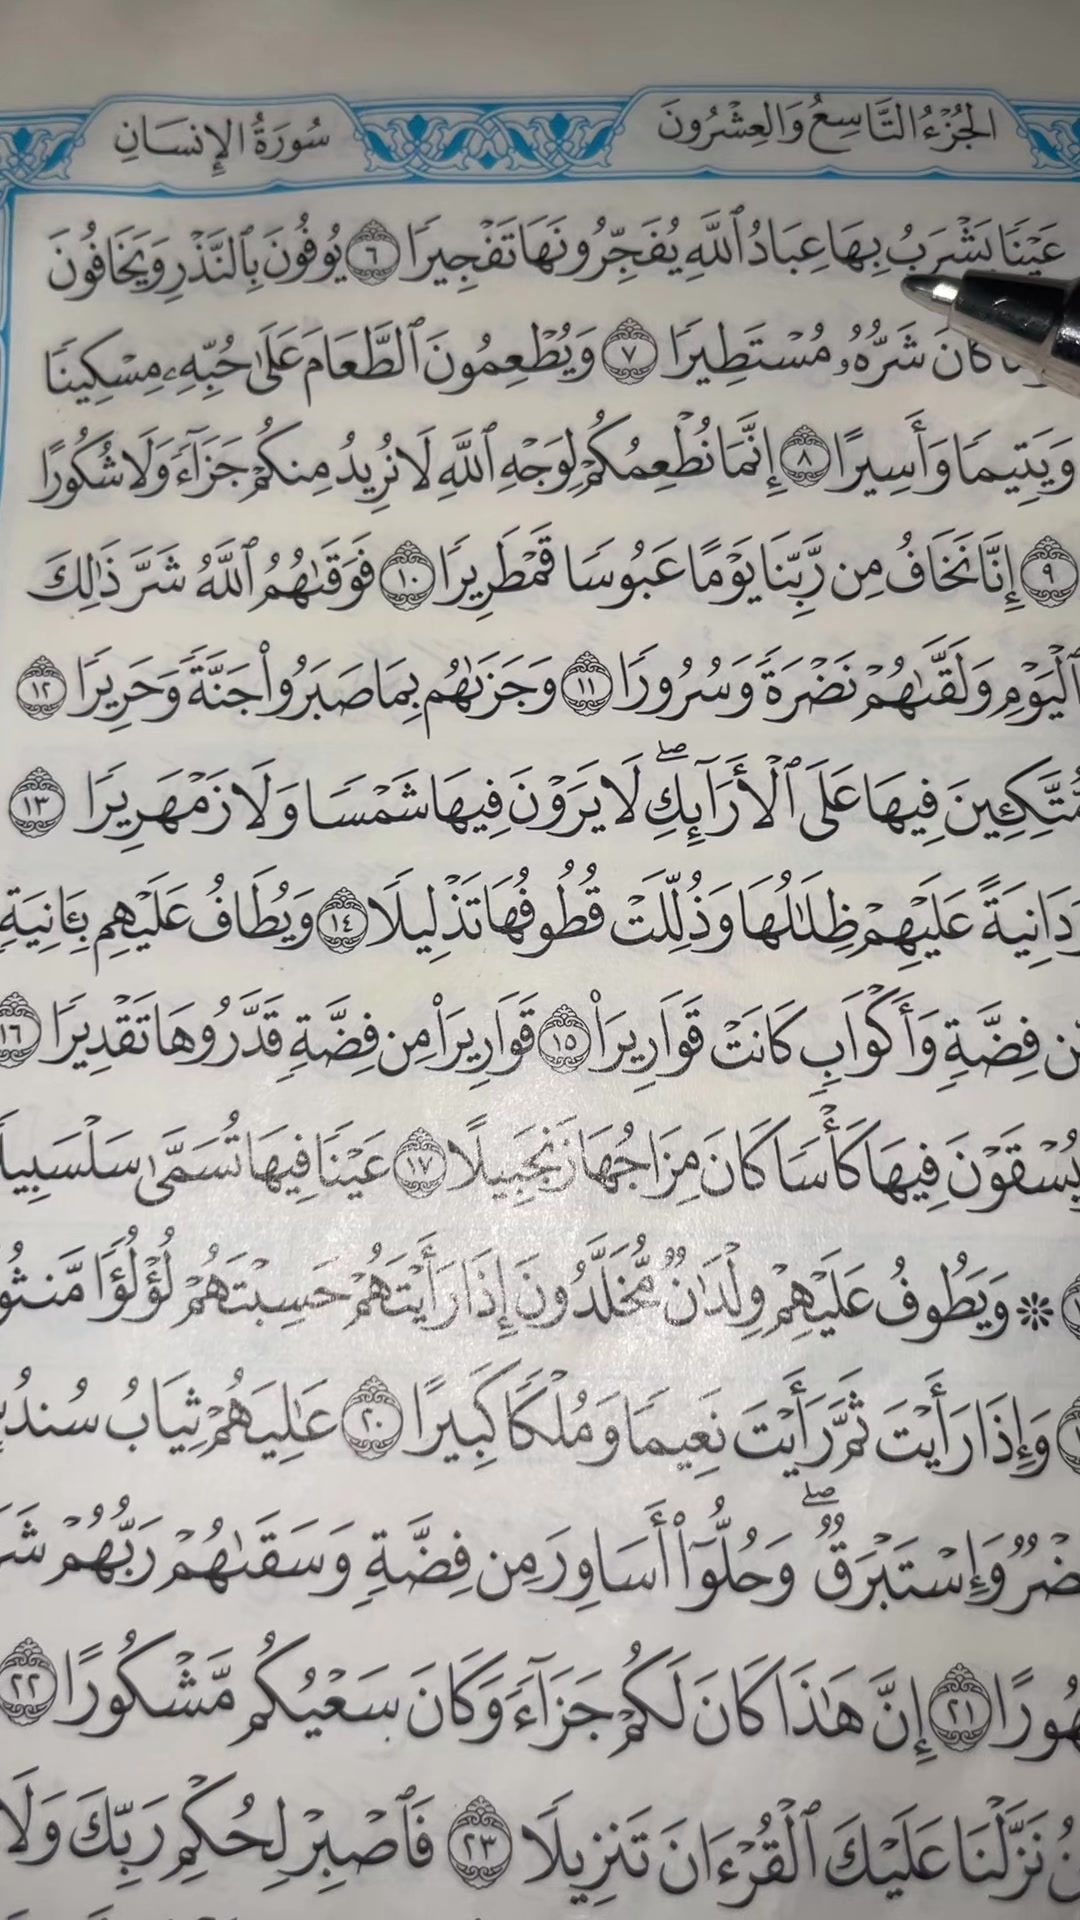 الجُزْءُ التَّاسِعُ وَالعِشْرُونَ
سُورَةُ الإِنسَانِ
عَيْنًا يَشْرَبُ بِهَا عِبَادُ ٱللَّهِ يُفَجِّرُونَهَا تَفْجِيرًا ٦ يُوفُونَ بِٱلنَّذْرِ وَيَخَافُونَ
كَانَ شَرُّهُۥ مُسْتَطِيرًا ٧ وَيُطْعِمُونَ ٱلطَّعَامَ عَلَىٰ حُبِّهِۦ مِسْكِينًا
وَيَتِيمًا وَأَسِيرًا ٨ إِنَّمَا نُطْعِمُكُمْ لِوَجْهِ ٱللَّهِ لَا نُرِيدُ مِنكُمْ جَزَآءً وَلَا شُكُورًا
٩ إِنَّا نَخَافُ مِن رَّبِّنَا يَوْمًا عَبُوسًا قَمْطَرِيرًا ١٠ فَوَقَىٰهُمُ ٱللَّهُ شَرَّ ذَٰلِكَ
ٱلْيَوْمِ وَلَقَّىٰهُمْ نَضْرَةً وَسُرُورًا ١١ وَجَزَىٰهُم بِمَا صَبَرُوا۟ جَنَّةً وَحَرِيرًا ١٢
مُّتَّكِـِٔينَ فِيهَا عَلَى ٱلْأَرَآئِكِ ۖ لَا يَرَوْنَ فِيهَا شَمْسًا وَلَا زَمْهَرِيرًا ١٣
وَدَانِيَةً عَلَيْهِمْ ظِلَـٰلُهَا وَذُلِّلَتْ قُطُوفُهَا تَذْلِيلًا ١٤ وَيُطَافُ عَلَيْهِم بِـَٔانِيَةٍ
مِّن فِضَّةٍ وَأَكْوَابٍ كَانَتْ قَوَارِيرَا۠ ١٥ قَوَارِيرَا۟ مِن فِضَّةٍ قَدَّرُوهَا تَقْدِيرًا ١٦
يُسْقَوْنَ فِيهَا كَأْسًا كَانَ مِزَاجُهَا زَنجَبِيلًا ١٧ عَيْنًا فِيهَا تُسَمَّىٰ سَلْسَبِيلًا
۞ وَيَطُوفُ عَلَيْهِمْ وِلْدَٰنٌ مُّخَلَّدُونَ إِذَا رَأَيْتَهُمْ حَسِبْتَهُمْ لُؤْلُؤًا مَّنثُو
وَإِذَا رَأَيْتَ ثَمَّ رَأَيْتَ نَعِيمًا وَمُلْكًا كَبِيرًا ٢٠ عَـٰلِيَهُمْ ثِيَابُ سُندُسٍ
خُضْرٌ وَإِسْتَبْرَقٌ ۖ وَحُلُّوٓا۟ أَسَاوِرَ مِن فِضَّةٍ وَسَقَىٰهُمْ رَبُّهُمْ شَر
هُورًا ٢١ إِنَّ هَـٰذَا كَانَ لَكُمْ جَزَآءً وَكَانَ سَعْيُكُم مَّشْكُورًا ٢٢
نَزَّلْنَا عَلَيْكَ ٱلْقُرْءَانَ تَنزِيلًا ٢٣ فَٱصْبِرْ لِحُكْمِ رَبِّكَ وَلَا